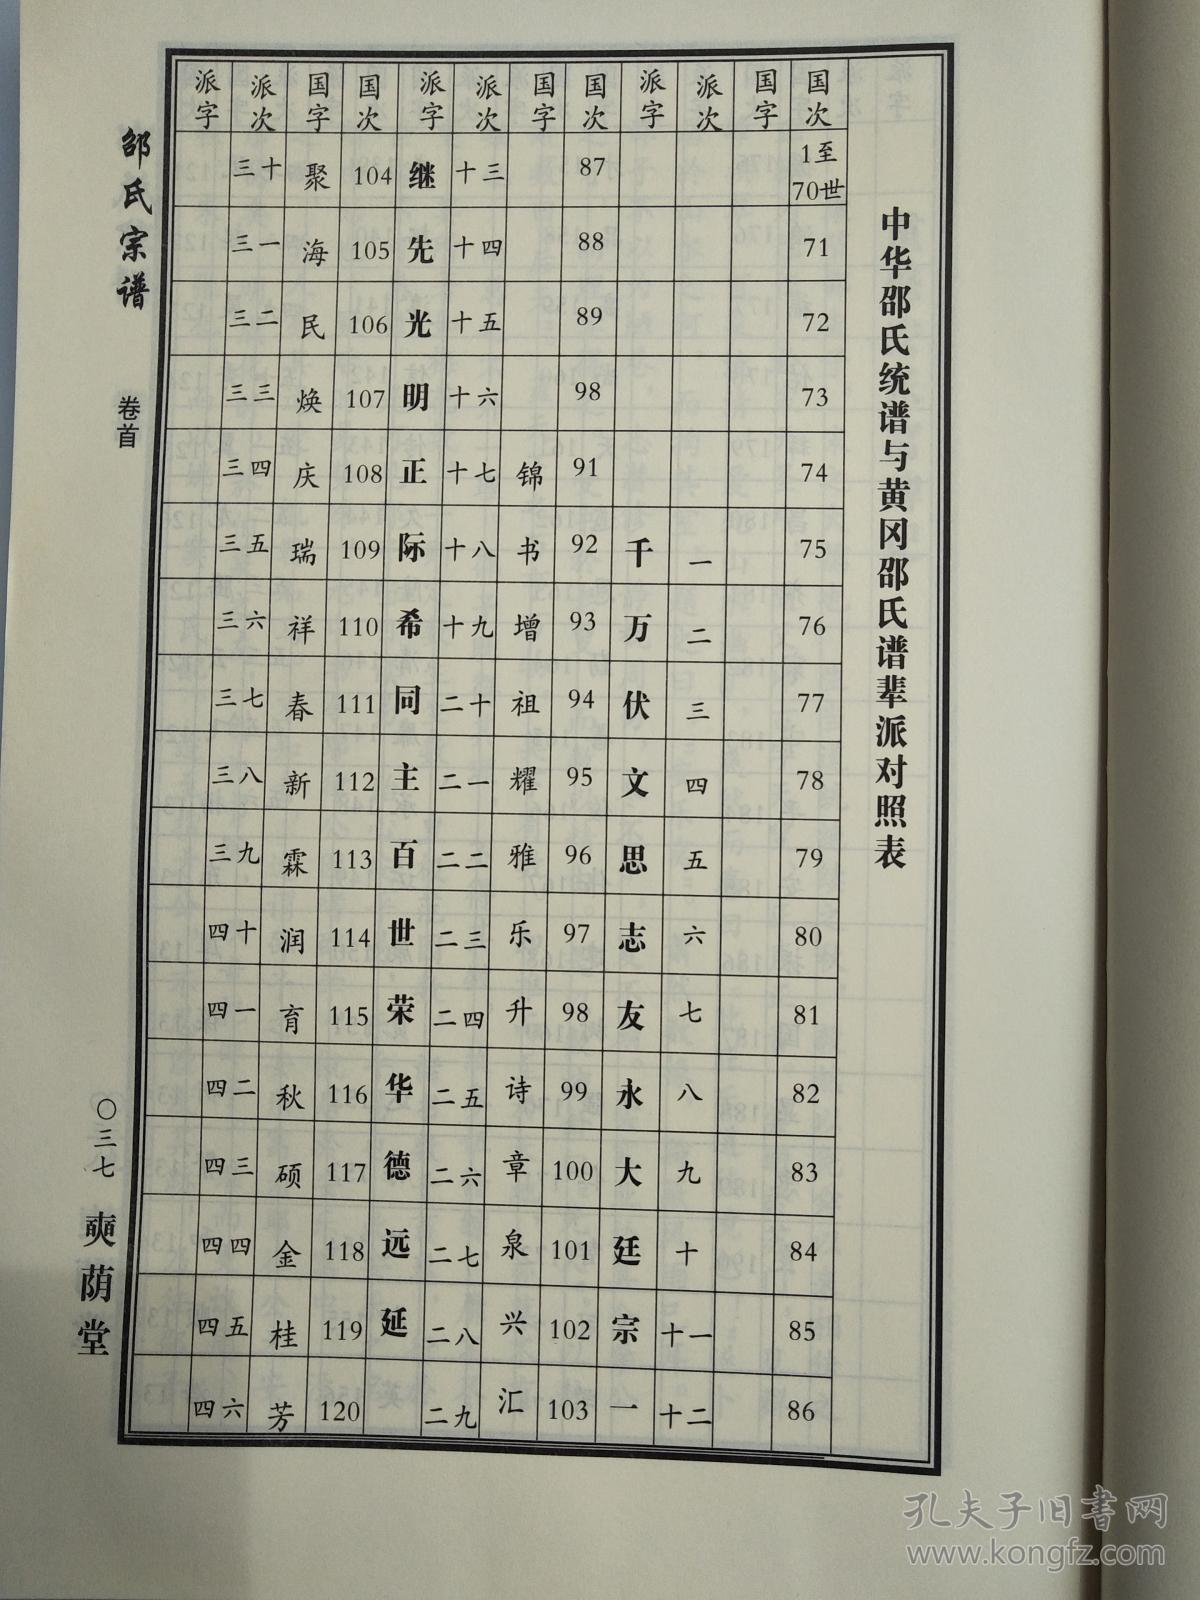 中华邵氏统谱与黄冈邵氏谱辈派对照表
国次 国字 派次 派字 国次 国字 派次 派字 国次 国字 派次 派字
1至70世 87 十三 继 104 聚 三十
71 88 十四 先 105 海 三一
72 89 十五 光 106 民 三二
73 98 十六 明 107 焕 三三
74 91 锦 十七 正 108 庆 三四
75 一 千 92 书 十八 际 109 瑞 三五
76 二 万 93 增 十九 希 110 祥 三六
77 三 伏 94 祖 二十 同 111 春 三七
78 四 文 95 耀 二一 主 112 新 三八
79 五 思 96 雅 二二 百 113 霖 三九
80 六 志 97 乐 二三 世 114 润 四十
81 七 友 98 升 二四 荣 115 育 四一
82 八 永 99 诗 二五 华 116 秋 四二
83 九 大 100 章 二六 德 117 硕 四三
84 十 廷 101 泉 二七 远 118 金 四四
85 十一 宗 102 兴 二八 延 119 桂 四五
86 十二 一 103 汇 二九 120 芳 四六
邵氏宗谱
卷首
〇三七
奭荫堂
孔夫子旧书网
www.kongfz.com